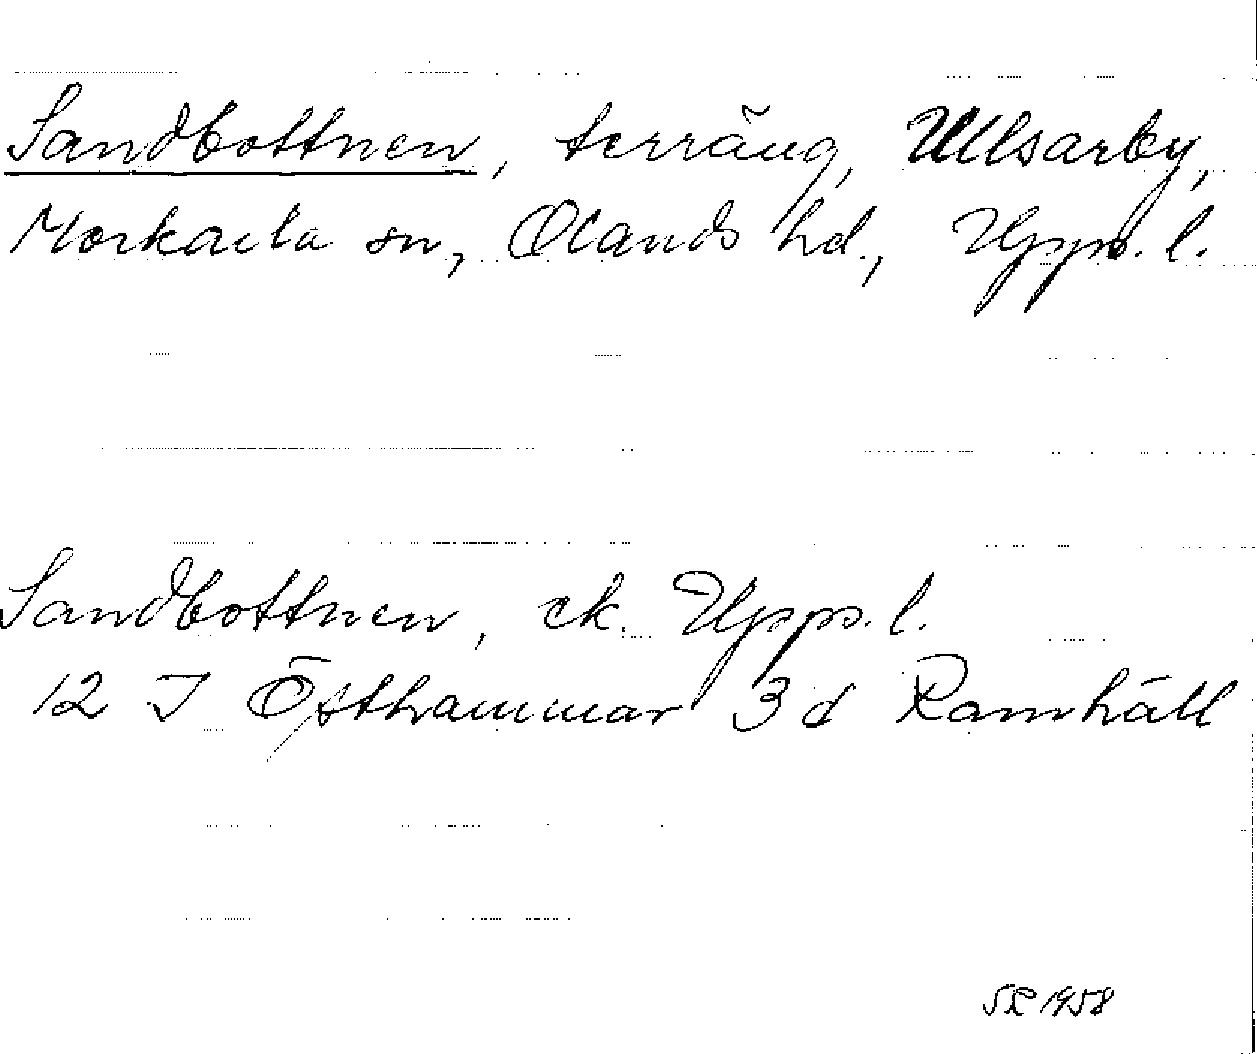 Sandbottnen, terräng, Ullsarby,
Morkarla sn, Olands hd., Upps. l.
Sandbottnen, ek. Upps. l.
12 I Östhammar 3 d Ramhäll
1958